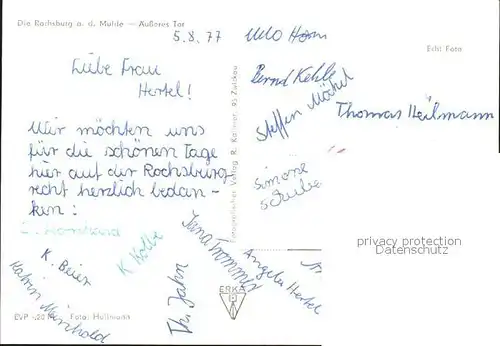 Die Rochsburg a. d. Mulde — Äußeres Tor
5.8.77
Udo Horn
Echt Foto
Liebe Frau
Hertel!
Bernd Kehle
Steffen Möckel
Thomas Heilmann
Wir möchten uns
für die schönen Tage
hier auf der Rochsburg
recht herzlich bedan-
ken:
Simone
Fotographischer Verlag R. Kallmer, 95 Zwickau
privacy protection
Datenschutz
K. Beier
K Kolbe
Jana Trommer
Angela Hertel
Katrin Meinhold
Th. Jahn
ERKA
EVP -,20 M Foto: Hullmann